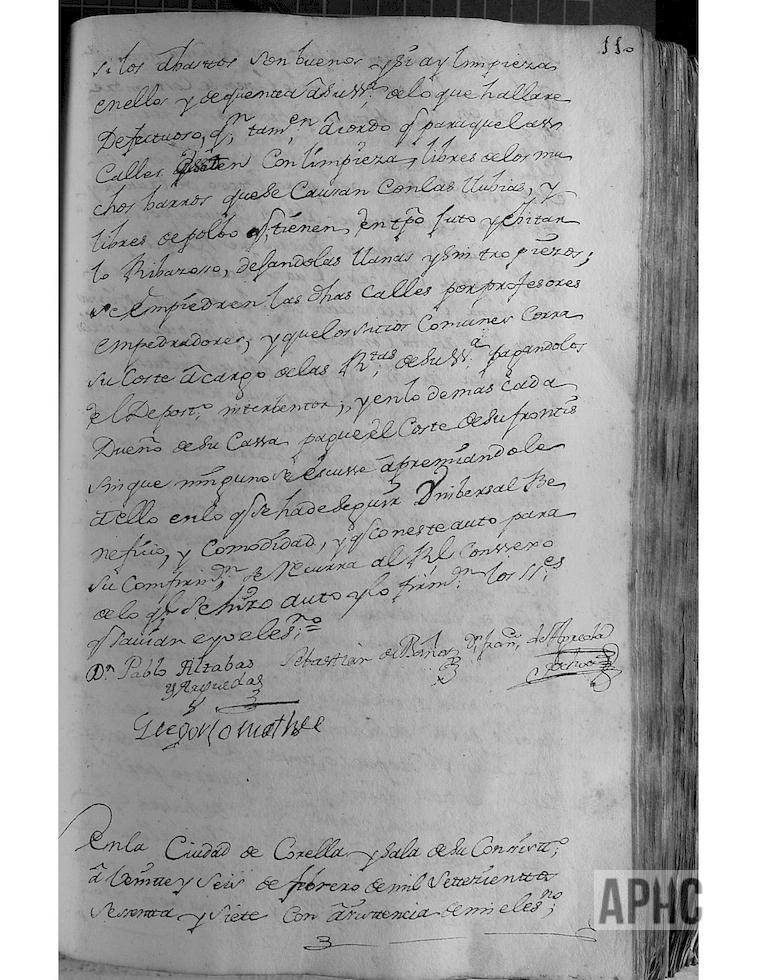 110
si los abastos son buenos y si ay limpieza
en ellos y de quenta a su Sª. de lo que hallare
Defectuoso, qn. tamen. acordo q para que las
Calles esten con limpieza, libres de los mu
chos barros que se causan con las llubias, y
libres de polbo q tienen en tpo suto y ebitar
lo Ribazoso, dejandolas llanas y sin tropiezos;
se empiedren las dhas calles por profesores
empedradores, y que los sitios comunes corra
su coste a cargo de las Rtas. de su Sª. pagandolos
el Deposto. interbentor, y en lo demas cada
Dueño de su cassa pague el coste de su frontis
sin que ninguno se escusse apremiandole
a ello en lo q se ha de seguir Vnibersal Be
neficio, y comodidad, y q con este auto para
su Confirmn. se recurra al Rl. Conssexo
de lo ql se hizo auto q lo firmn. los SSes
q sauian e yo el esno.
Dn. Pablo Alzabas
y Arguedas
Sebastian de
Gregorio
En la Ciudad de Corella y sala de su Consisto.
a Veinte y seis de febrero de mil setezientos
sesenta y siete con asistencia de mi el esno.
APHC